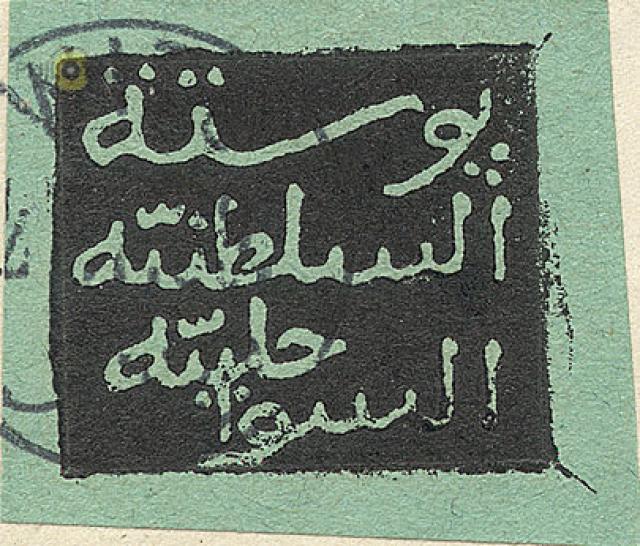 پوستة
السلطنة
السواحلية